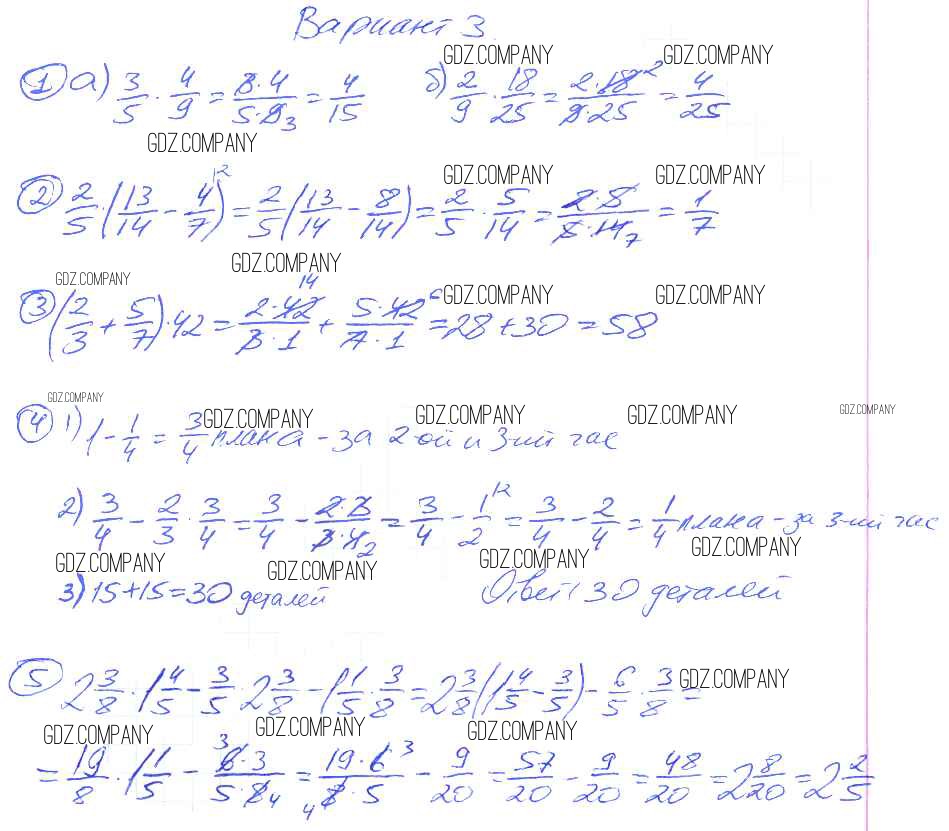 Вариант 3
GDZ.COMPANY GDZ.COMPANY
① а) 3/5 · 4/9 = 3·4/5·9 3 = 4/15 б) 2/9 · 18/25 = 2·18 2/9·25 = 4/25
GDZ.COMPANY
GDZ.COMPANY GDZ.COMPANY
② 2/5 · (13/14 - 4/7 |2) = 2/5 (13/14 - 8/14) = 2/5 · 5/14 = 2·5/5·14 7 = 1/7
GDZ.COMPANY
GDZ.COMPANY GDZ.COMPANY GDZ.COMPANY
③ (2/3 + 5/7) · 42 = 2·42 14/3·1 + 5·42 6/7·1 = 28 + 30 = 58
GDZ.COMPANY
GDZ.COMPANY GDZ.COMPANY GDZ.COMPANY GDZ.COMPANY
④ 1) 1 - 1/4 = 3/4 плана - за 2-ой и 3-ий час
2) 3/4 - 2/3 · 3/4 = 3/4 - 2·3/3·4 2 = 3/4 - 1/2 |2 = 3/4 - 2/4 = 1/4 плана - за 3-ий час
GDZ.COMPANY GDZ.COMPANY GDZ.COMPANY GDZ.COMPANY
3) 15+15=30 деталей Ответ: 30 деталей
⑤ 2 3/8 · 1 4/5 - 3/5 · 2 3/8 - 1 1/5 · 3/8 = 2 3/8 (1 4/5 - 3/5) - 6/5 · 3/8 =
GDZ.COMPANY
GDZ.COMPANY GDZ.COMPANY GDZ.COMPANY
= 19/8 · 1 1/5 - 3 6·3/5·8 4 = 19·6 3/4 8·5 - 9/20 = 57/20 - 9/20 = 48/20 = 2 8/20 = 2 2/5